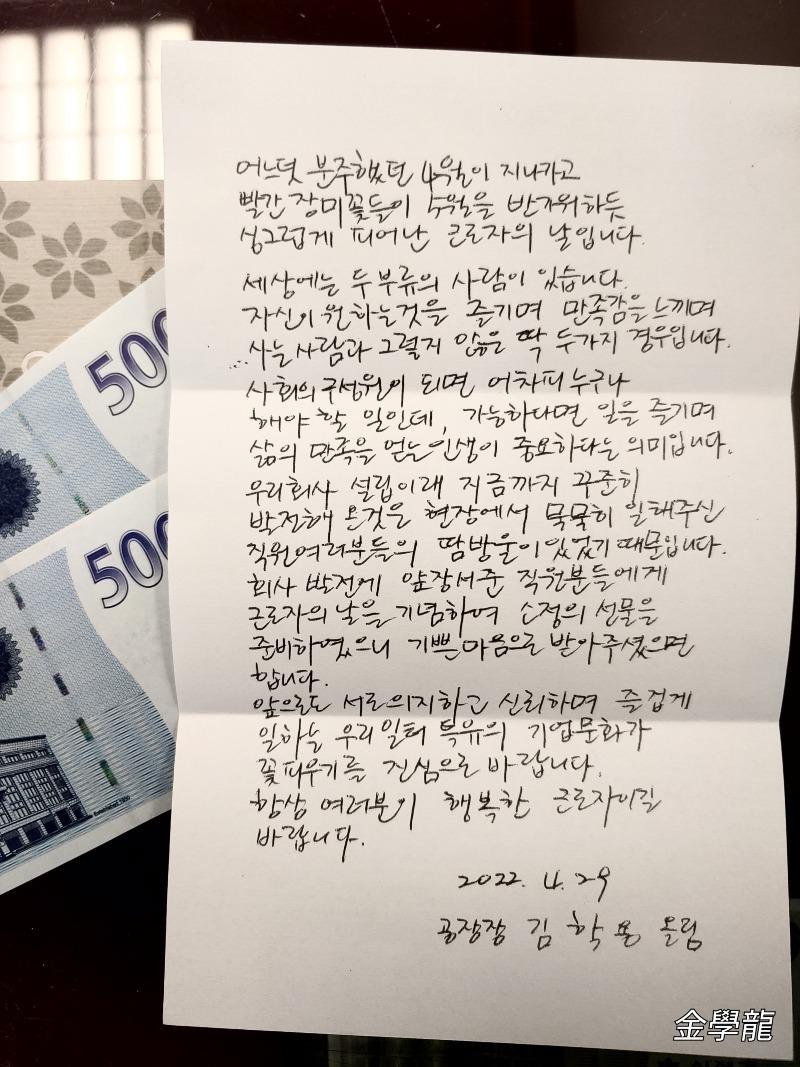 어느덧 분주했던 4월이 지나가고
빨간 장미꽃들이 5월을 반가워하듯
싱그럽게 피어난 근로자의 날입니다.
세상에는 두 부류의 사람이 있습니다.
자신이 원하는것을 즐기며 만족감을 느끼며
사는 사람과 그렇지 않은 딱 두가지 경우입니다.
사회의 구성원이 되면 어차피 누구나
해야 할 일인데, 가능하다면 일을 즐기며
삶의 만족을 얻는 인생이 중요하다는 의미입니다.
우리회사 설립이래 지금까지 꾸준히
발전해 온것은 현장에서 묵묵히 일해주신
직원여러분들의 땀방울이 있었기 때문입니다.
회사 발전에 앞장서준 직원분들에게
근로자의 날을 기념하여 소정의 선물을
준비하였으니 기쁜 마음으로 받아주셨으면
합니다.
앞으로도 서로의지하고 신뢰하며 즐겁게
일하는 우리일터 특유의 기업문화가
꽃피우기를 진심으로 바랍니다.
항상 여러분이 행복한 근로자이길
바랍니다.
2022. 4. 29
공장장 김 학 용 올림
500
500
金學龍